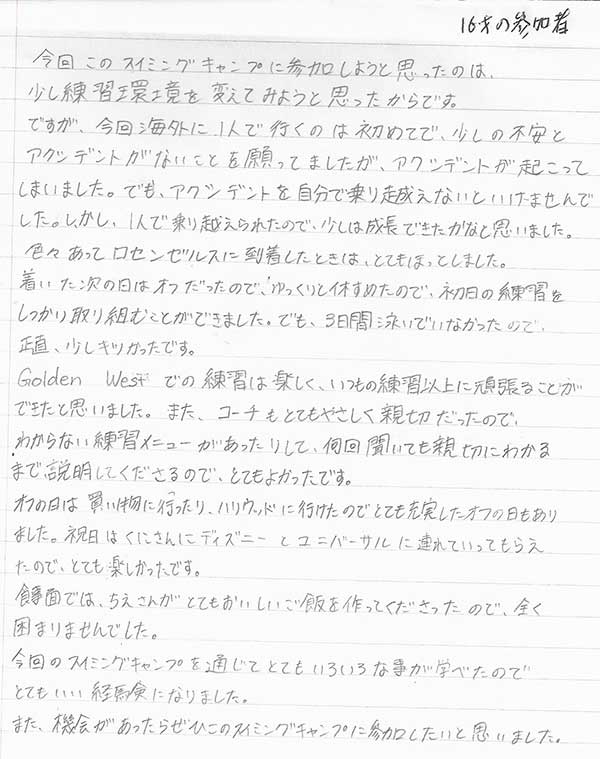 16才の参加者
今回このスイミングキャンプに参加しようと思ったのは、
少し練習環境を変えてみようと思ったからです。
ですが、今回海外に1人で行くのは初めてで、少しの不安と
アクシデントがないことを願ってましたが、アクシデントが起こって
しまいました。でも、アクシデントを自分で乗り越えないといけませんで
した。しかし、1人で乗り越えられたので、少しは成長できたかなと思いました。
色々あってロセンゼルスに到着したときは、とてもほっとしました。
着いた次の日はオフだったので、ゆっくりと休すめたので、初日の練習を
しっかり取り組むことができました。でも、3日間泳いでいなかったので、
正直、少しキツかったです。
Golden West での練習は楽しく、いつもの練習以上に頑張ることが
できたと思いました。また、コーチもとてもやさしく親切だったので、
わからない練習メニューがあったりして、何回聞いても親切にわかる
まで説明してくださるので、とてもよかったです。
オフの日は買い物に行ったり、ハリウッドに行けたのでとても充実したオフの日もあり
ました。祝日はくにさんにディズニーとユニバーサルに連れていってもらえ
たので、とても楽しかったです。
食事面では、ちえさんがとてもおいしいご飯を作ってくださったので、全く
困まりませんでした。
今回のスイミングキャンプを通じてとてもいろいろな事が学べたので
とてもいい経験になりました。
また、機会があったらぜひこのスイミングキャンプに参加したいと思いました。